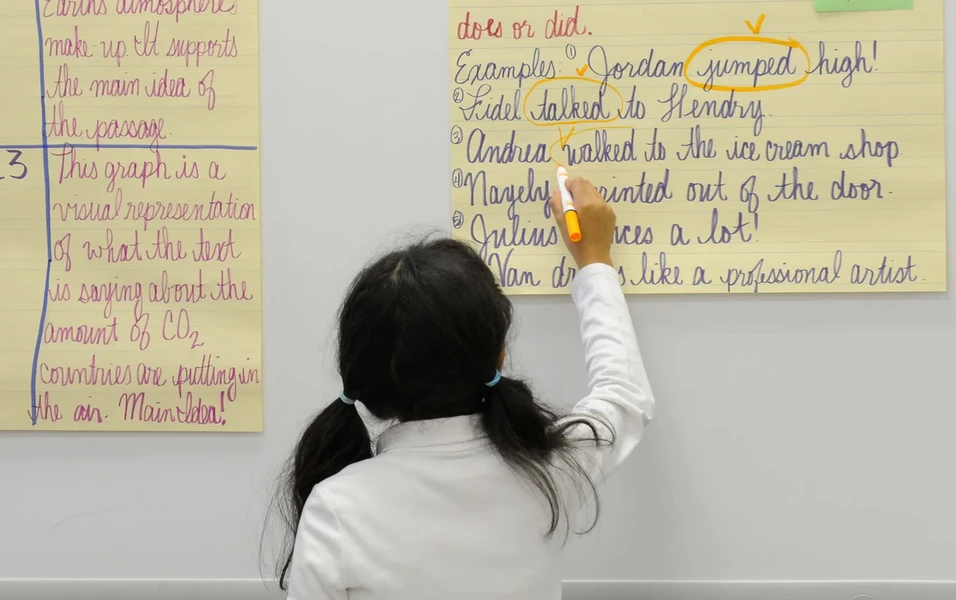 Earth's atmospheres
make-up. It supports
the main idea of
the passage.
3
This graph is a
visual representation
of what the text
is saying about the
amount of CO2
countries are putting in
the air. Main Idea!
does or did.
Examples: ① Jordan jumped high!
② Fidel talked to Hendry.
③ Andrea walked to the ice cream shop
④ Nayely out of the door.
⑤ Julius a lot!
Van like a professional artist.